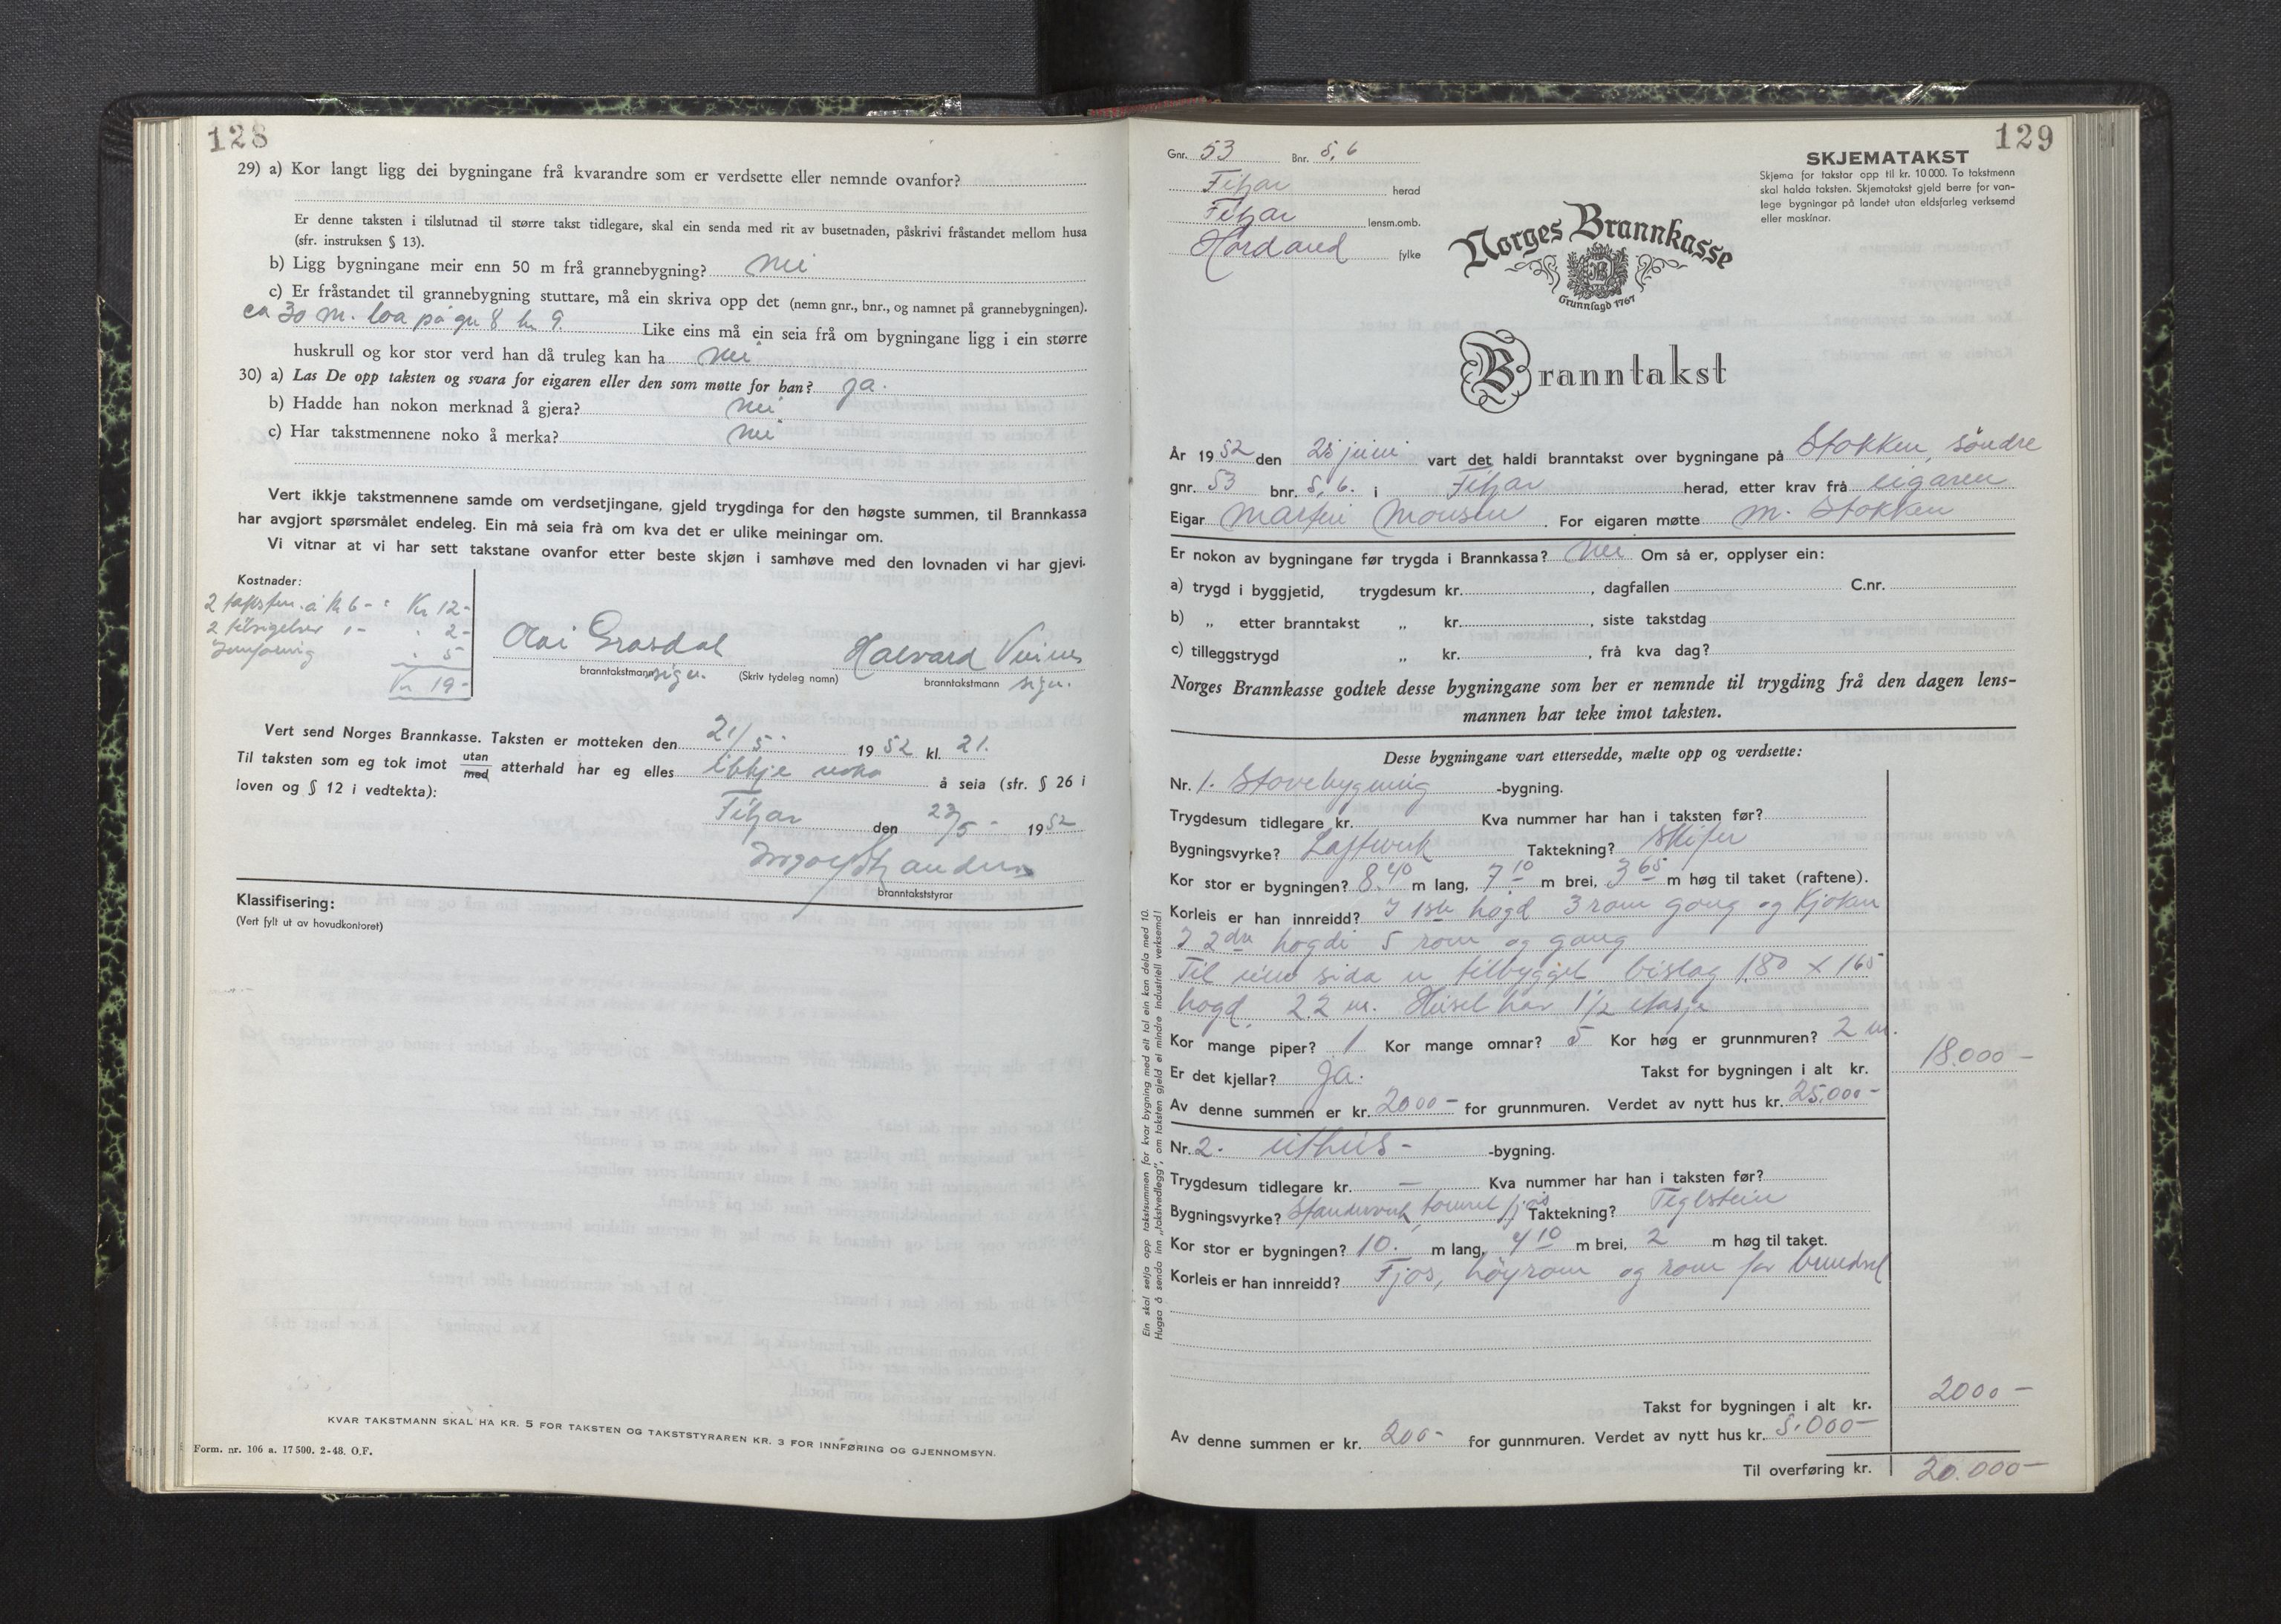 128
29) a) Kor langt ligg dei bygningane frå kvarandre som er verdsette eller nemnde ovanfor?
Er denne taksten i tilslutnad til større takst tidlegare, skal ein senda med rit av busetnaden, påskrivi fråstandet mellom husa
(sfr. instruksen § 13).
b) Ligg bygningane meir enn 50 m frå grannebygning? nei
c) Er fråstandet til grannebygning stuttare, må ein skriva opp det (nemn gnr., bnr., og namnet på grannebygningen).
ca 30 m. loa på gn 8 bn 9. Like eins må ein seia frå om bygningane ligg i ein større
huskrull og kor stor verd han då truleg kan ha nei
30) a) Las De opp taksten og svara for eigaren eller den som møtte for han? ja.
b) Hadde han nokon merknad å gjera? nei
c) Har takstmennene noko å merka? nei
Vert ikkje takstmennene samde om verdsetjingane, gjeld trygdinga for den høgste summen, til Brannkassa
har avgjort spørsmålet endeleg. Ein må seia frå om kva det er ulike meiningar om.
Vi vitnar at vi har sett takstane ovanfor etter beste skjøn i samhøve med den lovnaden vi har gjevi.
Kostnader:
2 takstm. á kr 6- : Kr 12-
2 tilsigelser 1- . 2-
Innføring . 5-
Kr 19-
Grasdal Halvard
branntakstmann sign. (Skriv tydeleg namn) branntakstmann sign.
Vert send Norges Brannkasse. Taksten er motteken den 21/5 - 1952 kl. 21.
Til taksten som eg tok imot utan/med atterhald har eg elles ikkje noko å seia (sfr. § 26 i
loven og § 12 i vedtekta):
Fitjar den 23/5 - 1952
branntakststyrar
Klassifisering:
(Vert fylt ut av hovudkontoret)
KVAR TAKSTMANN SKAL HA KR. 5 FOR TAKSTEN OG TAKSTSTYRAREN KR. 3 FOR INNFØRING OG GJENNOMSYN.
Form. nr. 106 a. 17500. 2-48. O.F.
129
Gnr. 53 Bnr. 5, 6
Fitjar herad
Fitjar lensm.omb.
Hordaland fylke
SKJEMATAKST
Skjema for takstar opp til kr. 10000. To takstmenn
skal halda taksten. Skjematakst gjeld berre for van-
lege bygningar på landet utan eldsfarleg verksemd
eller maskinar.
Norges Brannkasse
Grunnlagd 1767
Branntakst
År 1952 den 25 juni vart det haldi branntakst over bygningane på Stokken, söndre
gnr. 53 bnr. 5, 6. i Fitjar herad, etter krav frå eigaren
Eigar Martin Monsen. For eigaren møtte M. Stokken
Er nokon av bygningane før trygda i Brannkassa? nei Om så er, opplyser ein:
a) trygd i byggjetid, trygdesum kr. , dagfallen C.nr.
b) „ etter branntakst „ kr. , siste takstdag
c) tilleggstrygd „ kr. , frå kva dag?
Norges Brannkasse godtek desse bygningane som her er nemnde til trygding frå den dagen lens-
mannen har teke imot taksten.
Desse bygningane vart ettersedde, mælte opp og verdsette:
Nr. 1. Stovebygning -bygning.
Trygdesum tidlegare kr. Kva nummer har han i taksten før?
Bygningsvyrke? Lafteverk Taktekning? Skifer
Kor stor er bygningen? 8.40 m lang, 7.10 m brei, 3.65 m høg til taket (raftene).
Korleis er han innreidd? I 1ste høgd 3 rom gang og kjøken
I 2dre høgdi 5 rom og gang
Til eine sida er tilbygget bislag 1.80 x 1.65
høgd 2.2 m. Huset har 1½ etasje
Kor mange piper? 1 Kor mange omnar? 5 Kor høg er grunnmuren? 2 m.
Er det kjellar? Ja. Takst for bygningen i alt kr. 18.000 -
Av denne summen er kr. 2000 - for grunnmuren. Verdet av nytt hus kr. 25.000 -
Nr. 2. uthus - -bygning.
Trygdesum tidlegare kr. — Kva nummer har han i taksten før?
Bygningsvyrke? Standerverk, tømret fjøs Taktekning? Teglstein
Kor stor er bygningen? 10. m lang, 4.10 m brei, 2 m høg til taket.
Korleis er han innreidd? Fjøs, höyrom og rom for brendsel
Takst for bygningen i alt kr. 2000 -
Av denne summen er kr. 200 - for gunnmuren. Verdet av nytt hus kr. 5.000 -
Til overføring kr. 20.000 -
Ein skal setja opp takstsummen for kvar bygning med eit tal ein kan dela med 10.
Hugsa å senda inn „takstvedlegg", om taksten gjeld ei mindre industriell verksemd!